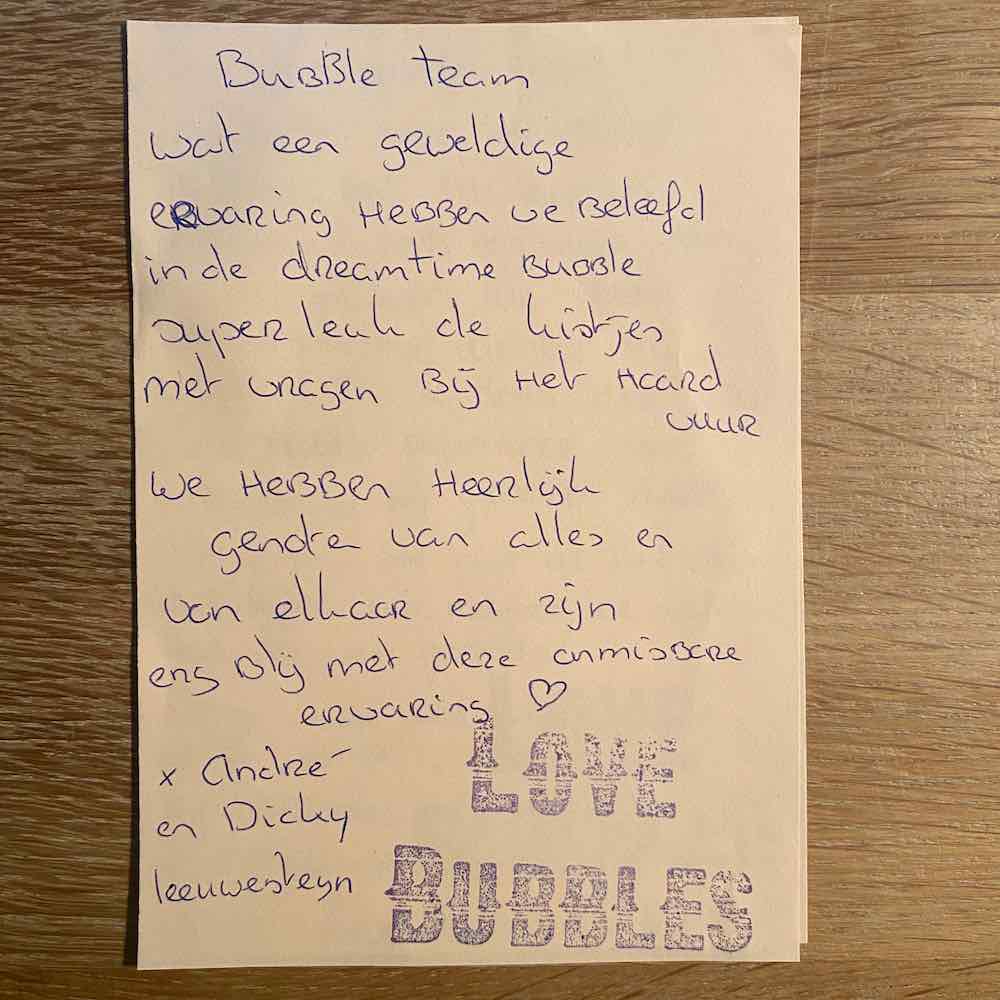 BuBBle team
wat een geweldige
ervaring HeBBen we Beleefd
in de dreamtime BuBBle
super leuk de kistjes
met vragen Bij Het Haard
vuur
We HeBBen Heerlijk
genoten van alles en
van elkaar en zijn
erg Blij met deze onmisBare
ervaring ♡
x André
en Dicky
leeuwesteyn
LOVE
BUBBLES